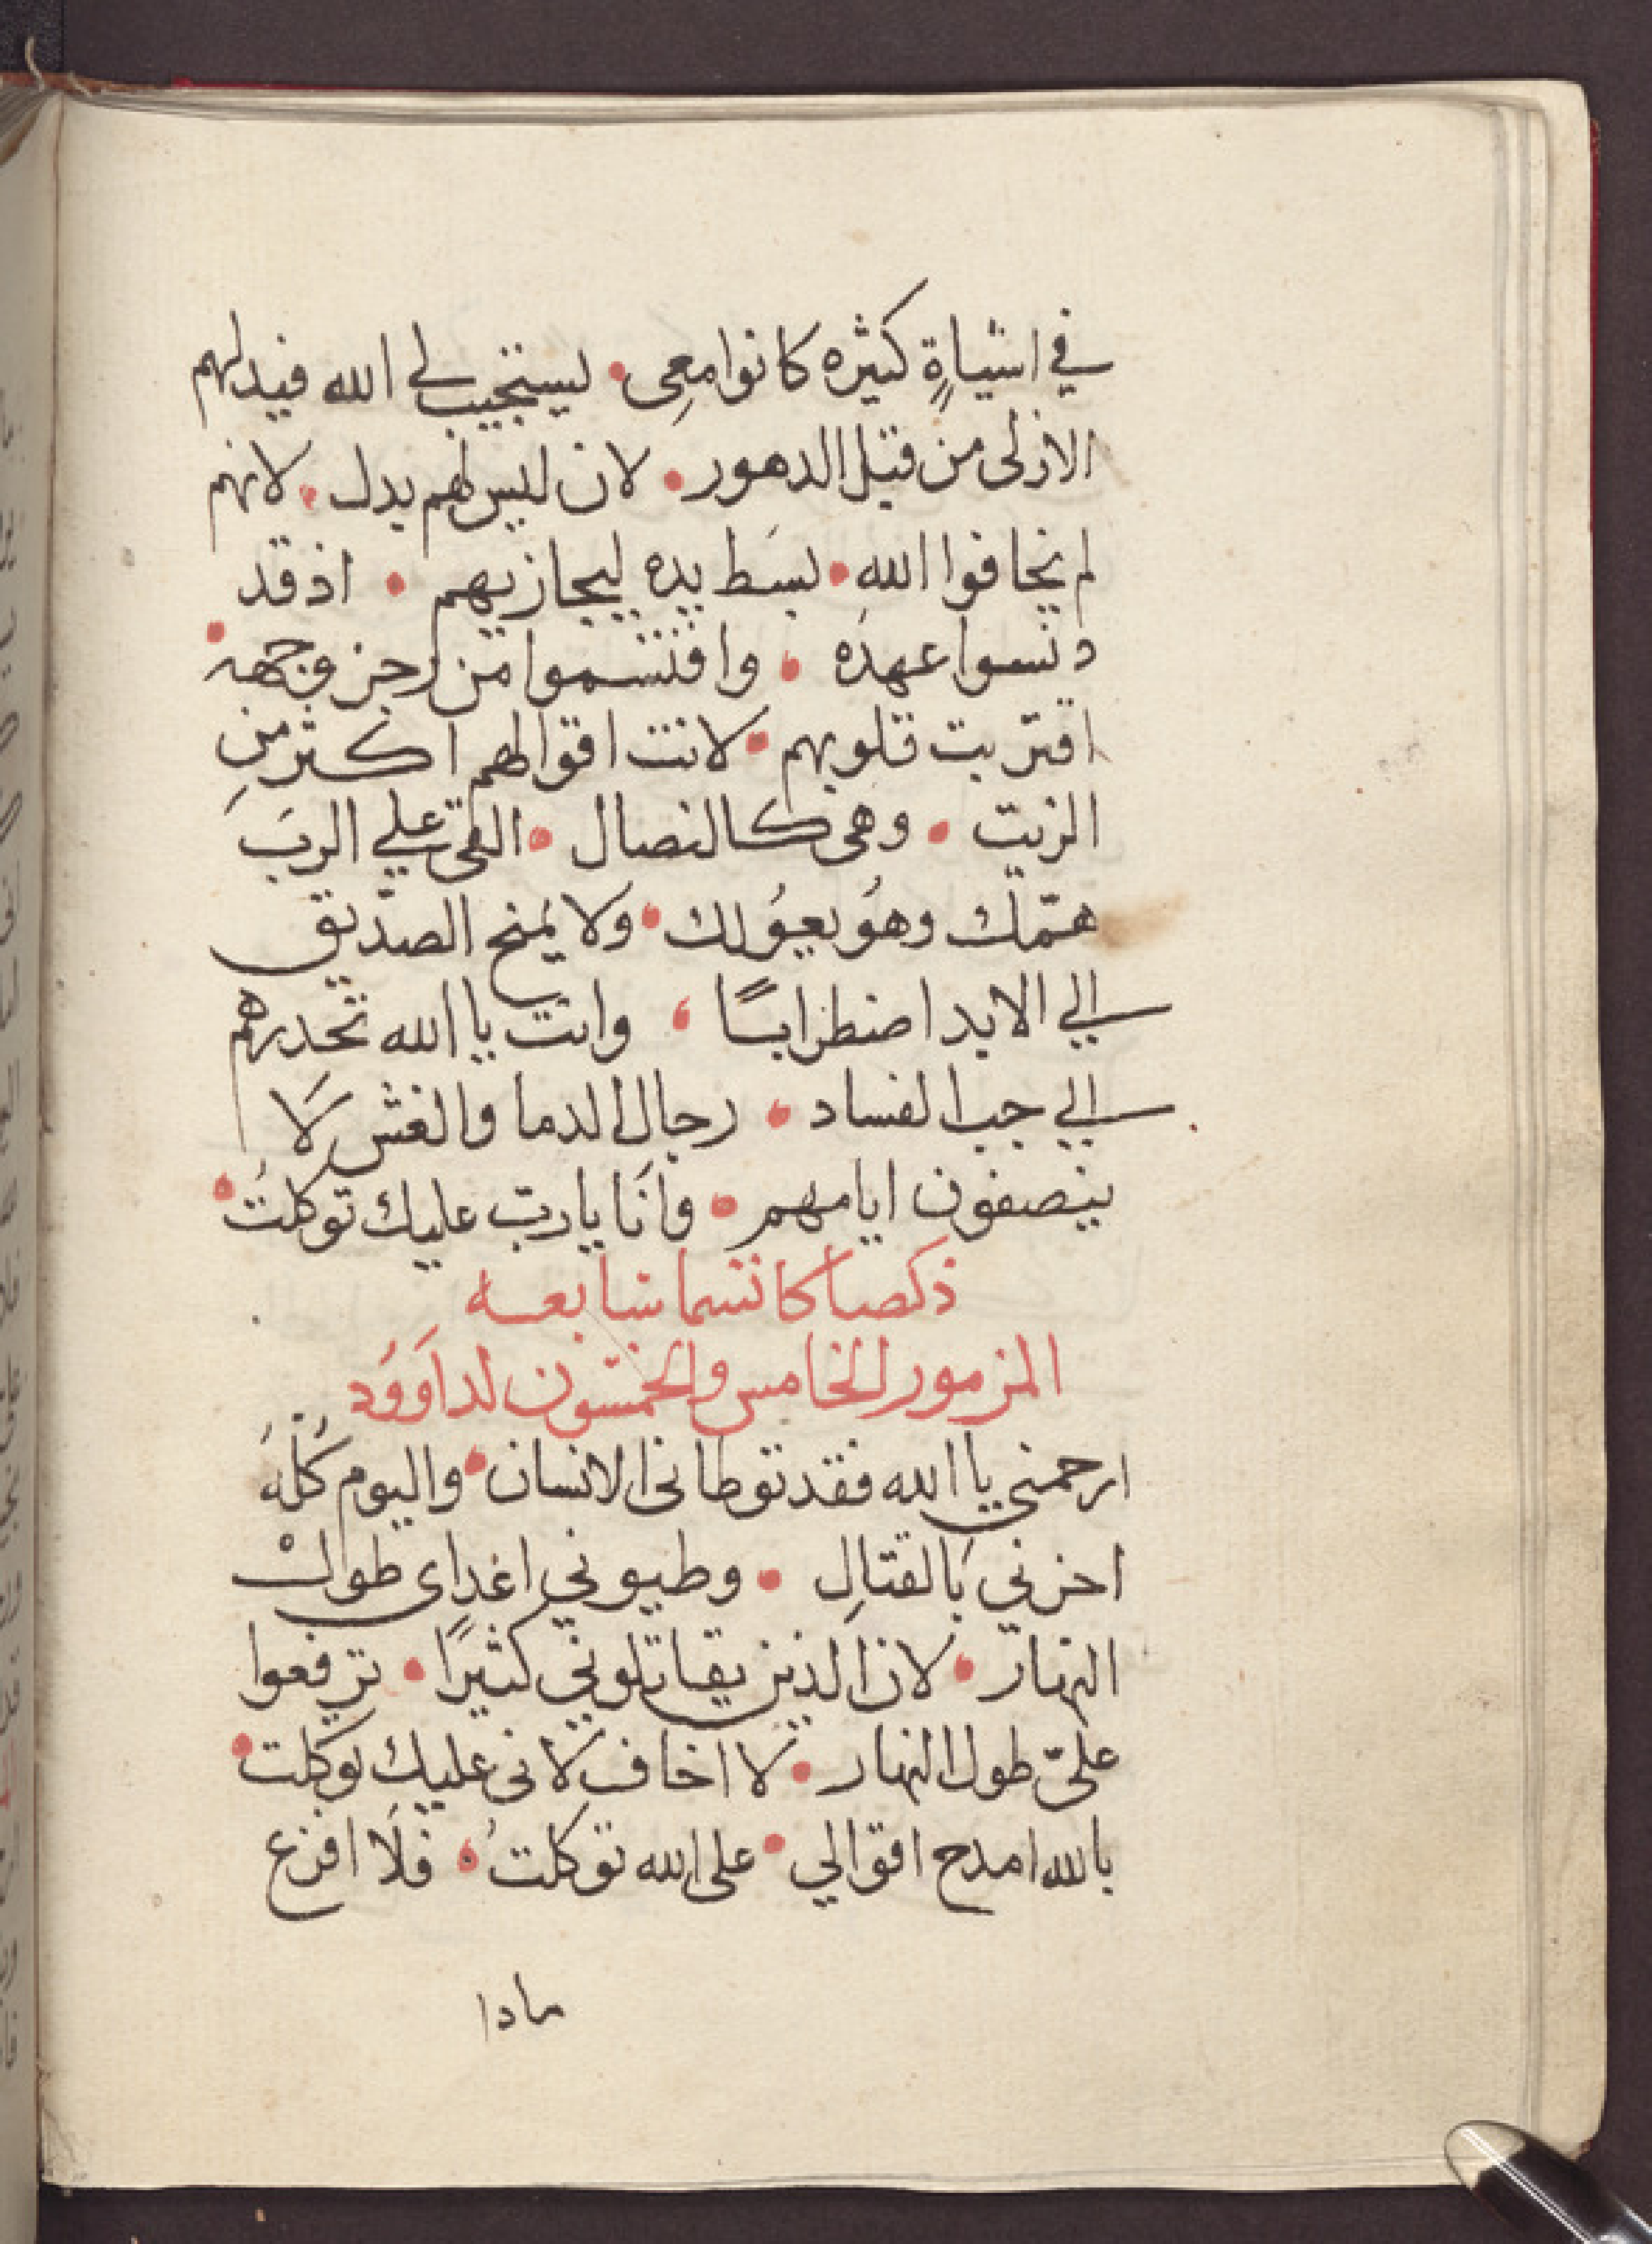 في اشياءٍ كثيره كانوا معِى • ليستجيب لي الله فيدلهم
الازلى من قبل الدهور • لان ليس لهم بدل • لانهم
لم يخافوا الله • بسَط يده ليجازيهم • اذ قد
دنسوا عهدَه • وافتسموا من رجز وجهه •
اقتربت قلوبهم • لانت اقوالهم اكثر مِن
الزيت • وهى كالنصال • القى علي الربَ
همّك وهُو يعوُلك • ولا يمنح الصدّيق
الي الابد اضطرابًا • وانت يا الله تحدرهم
الي جب الفساد • رجال الدما والغش لَا
ينصفون ايامهم • وانَا يا رب عليك توكلتُ •
ذكصا كاتسما سابعه
المزمور الخامس والخمسون لداوَوَد
ارحمني يا الله فقد توطانى الانسان • واليوم كُلهُ
احزني بَالقتالِ • وطيوني اغداى طوالْ
النهار • لان الذين يقاتلوني كثيرًا • ترفعوا
علىّ طول النهار • لا اخاف لانى عليك توكلت •
بالله امدح اقوالي • على الله توكلتُ • فلَا افزع
مادا